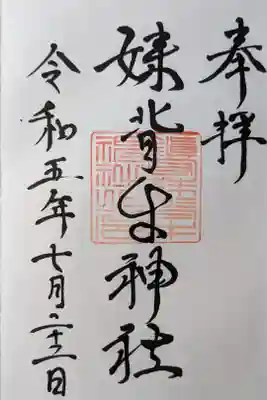 奉拝
妹背牛神社
令和五年七月二十二日